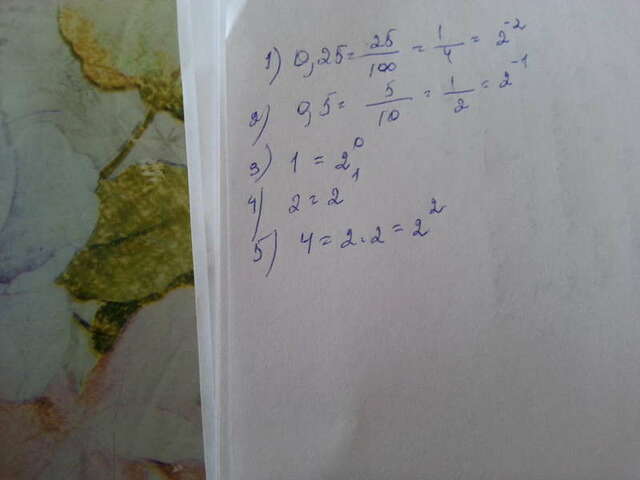 1) 0,25 = 25/100 = 1/4 = 2⁻²
2) 0,5 = 5/10 = 1/2 = 2⁻¹
3) 1 = 2⁰
4) 2 = 2¹
5) 4 = 2·2 = 2²